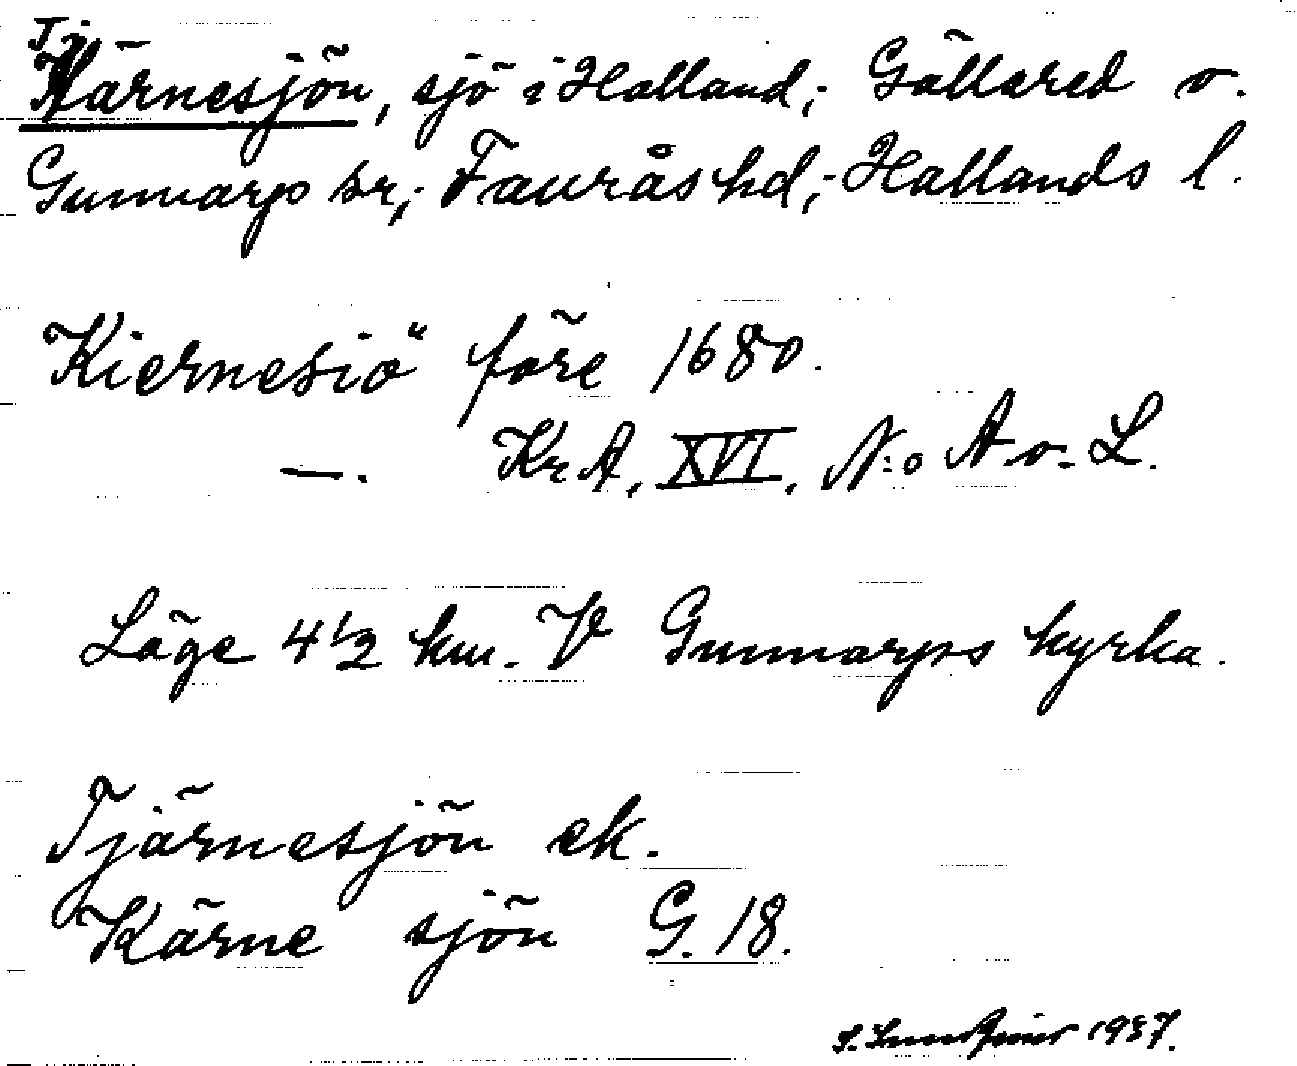 Tj
Kärnesjön, sjö i Halland; Gällared o.
Gunnarp sr; Faurås hd; Hallands l.
"Kiernesiö" före 1680.
—. KrA, XVI, N:o A. o. L.
Läge 4 1/2 km. V Gunnarps kyrka.
Tjärnesjön ek.
Kärne sjön G. 18.
1937.